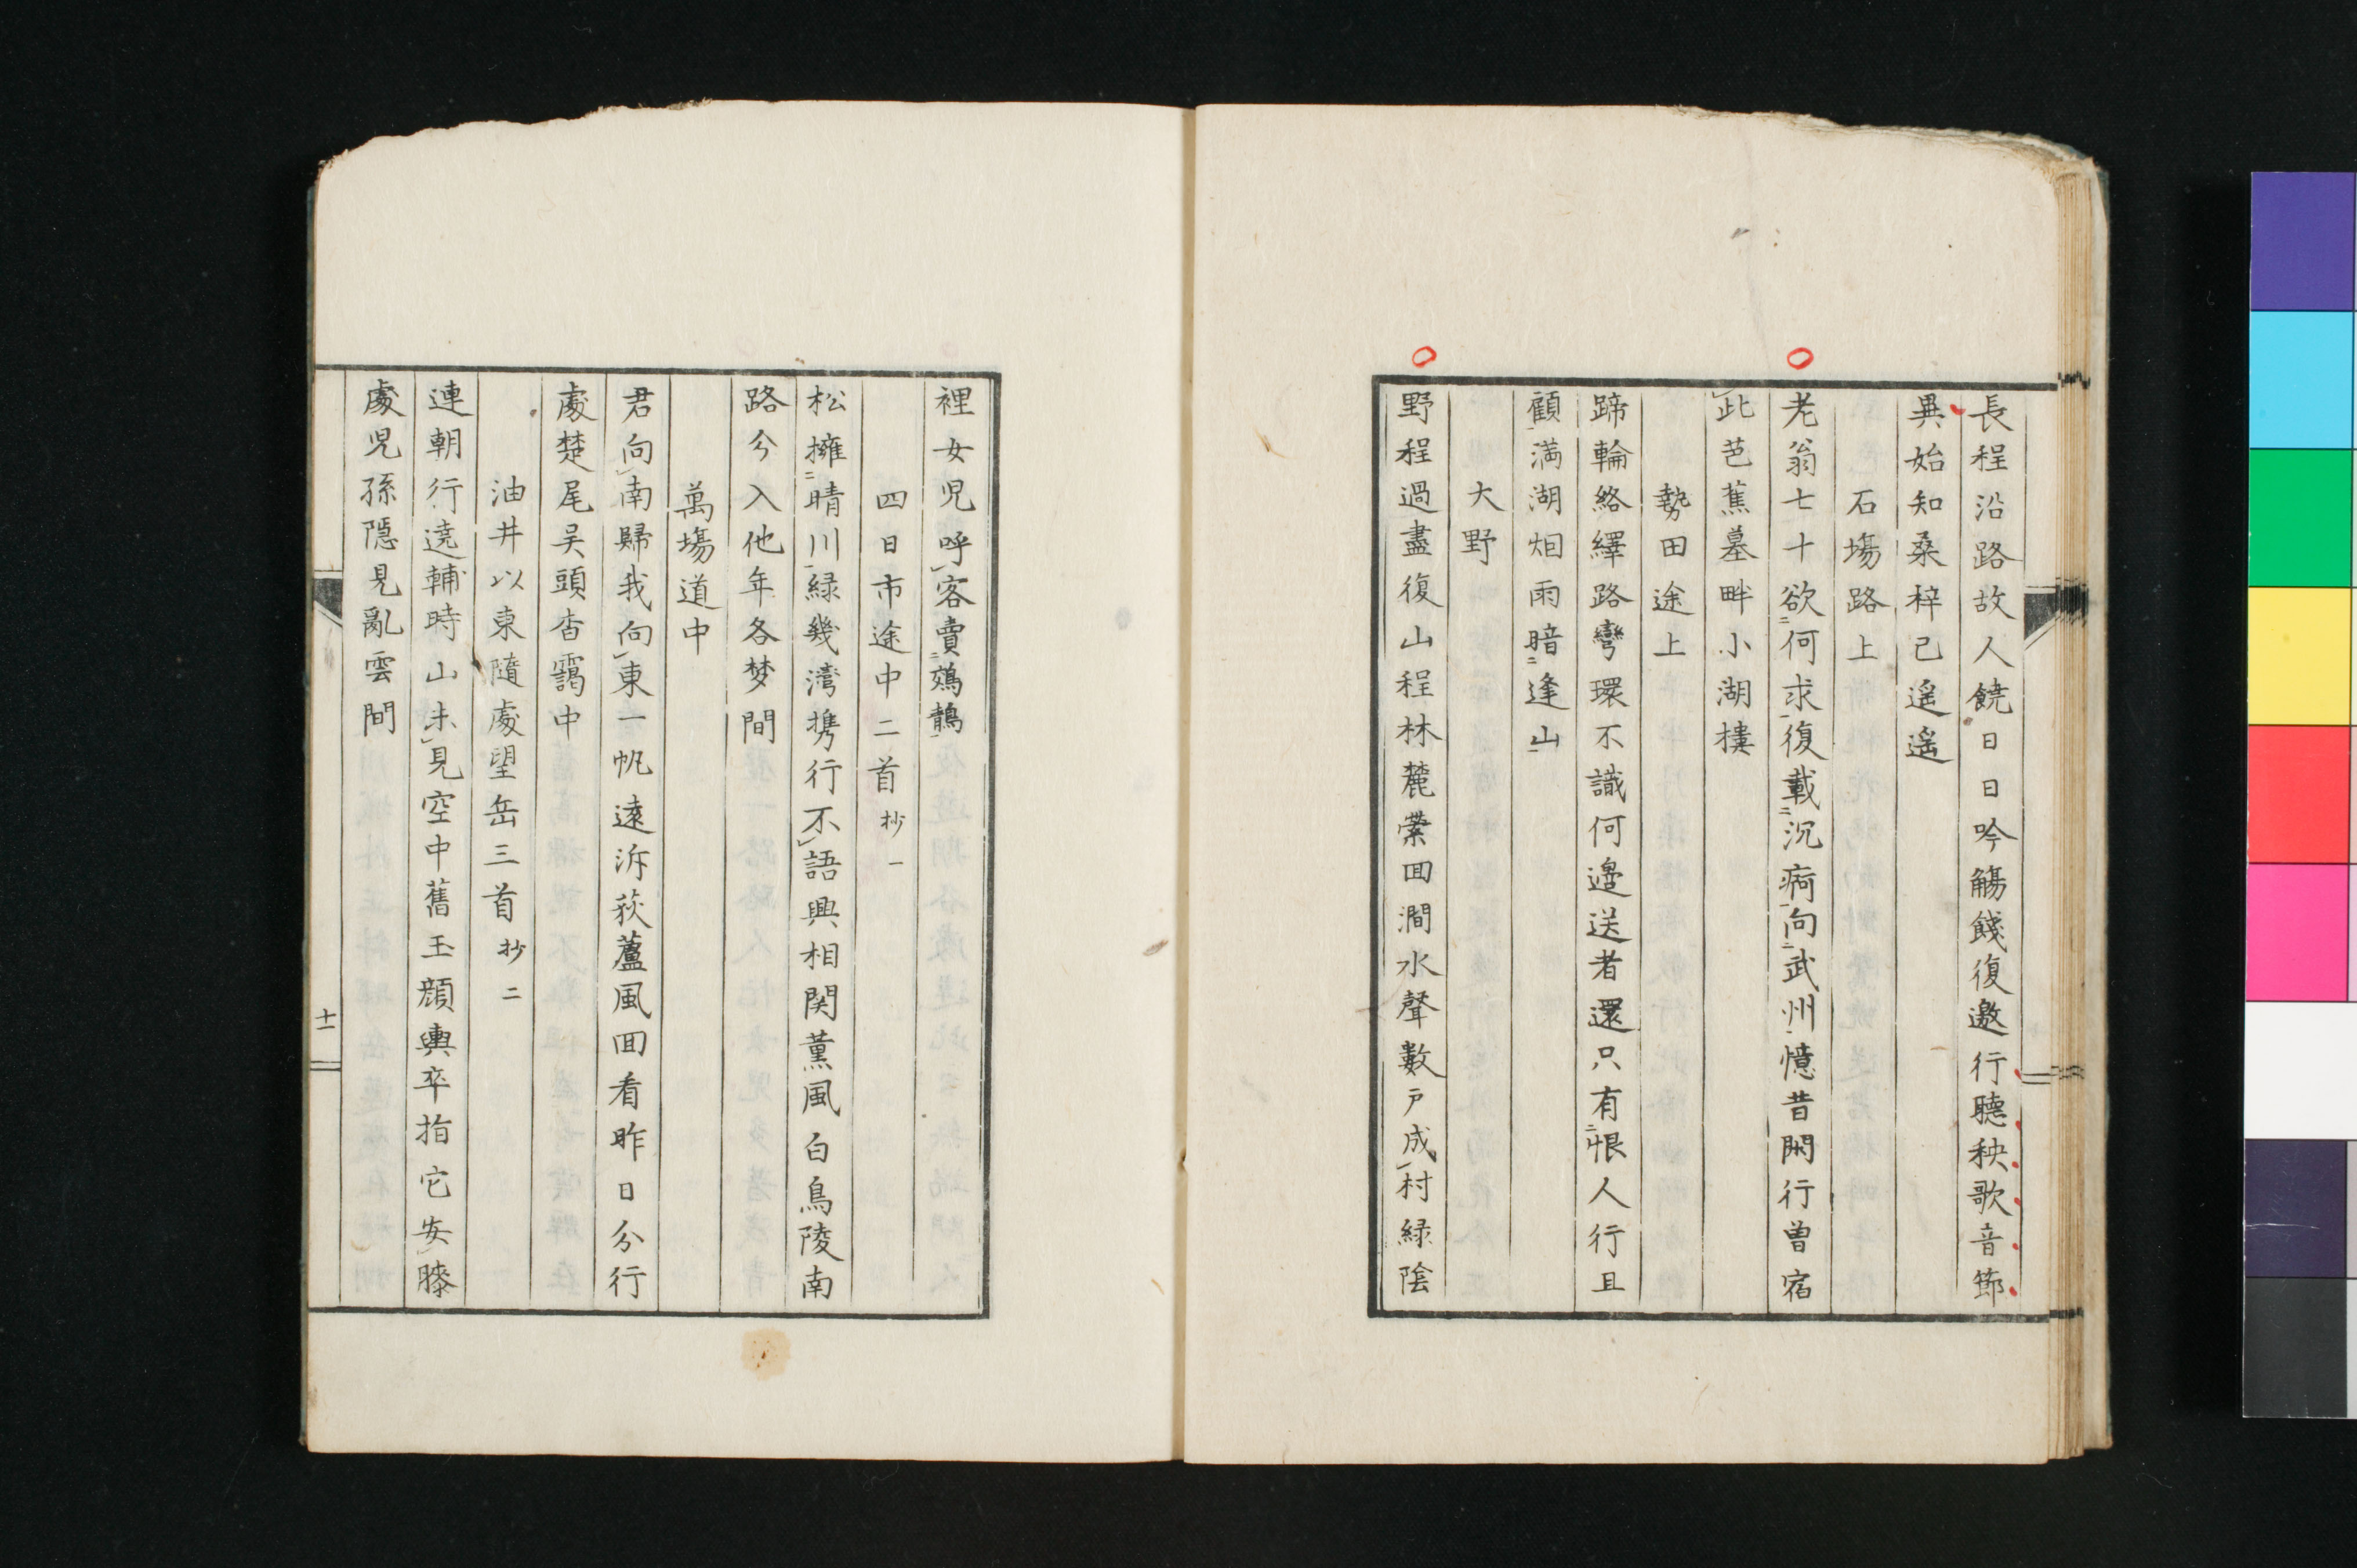 長程沿路故人饒日日吟觴餞復邀行聽秧歌音節
異始知桑梓已遥遥
石塲路上
老翁七十欲何求復載沉痾向武州憶昔閑行曽宿
此芭蕉墓畔小湖樓
勢田途上
蹄輪絡繹路彎環不識何邊送者還只有恨人行且
顧満湖烟雨暗逢山
大野
野程過盡復山程林麓縈囬澗水聲數戸成村緑陰
裡女児呼客賣鵁鶄
四日市途中二首抄一
松擁晴川緑幾湾携行不語興相関薫風白鳥陵南
路兮入他年各梦間
萬塲道中
君向南歸我向東一帆遠泝荻蘆風囬看昨日分行
處楚尾吴頭杳靄中
油井以東隨處望岳三首抄二
連朝行遶輔時山未見空中舊玉顔輿卒指它安膝
處児孫隠見亂雲間
十一